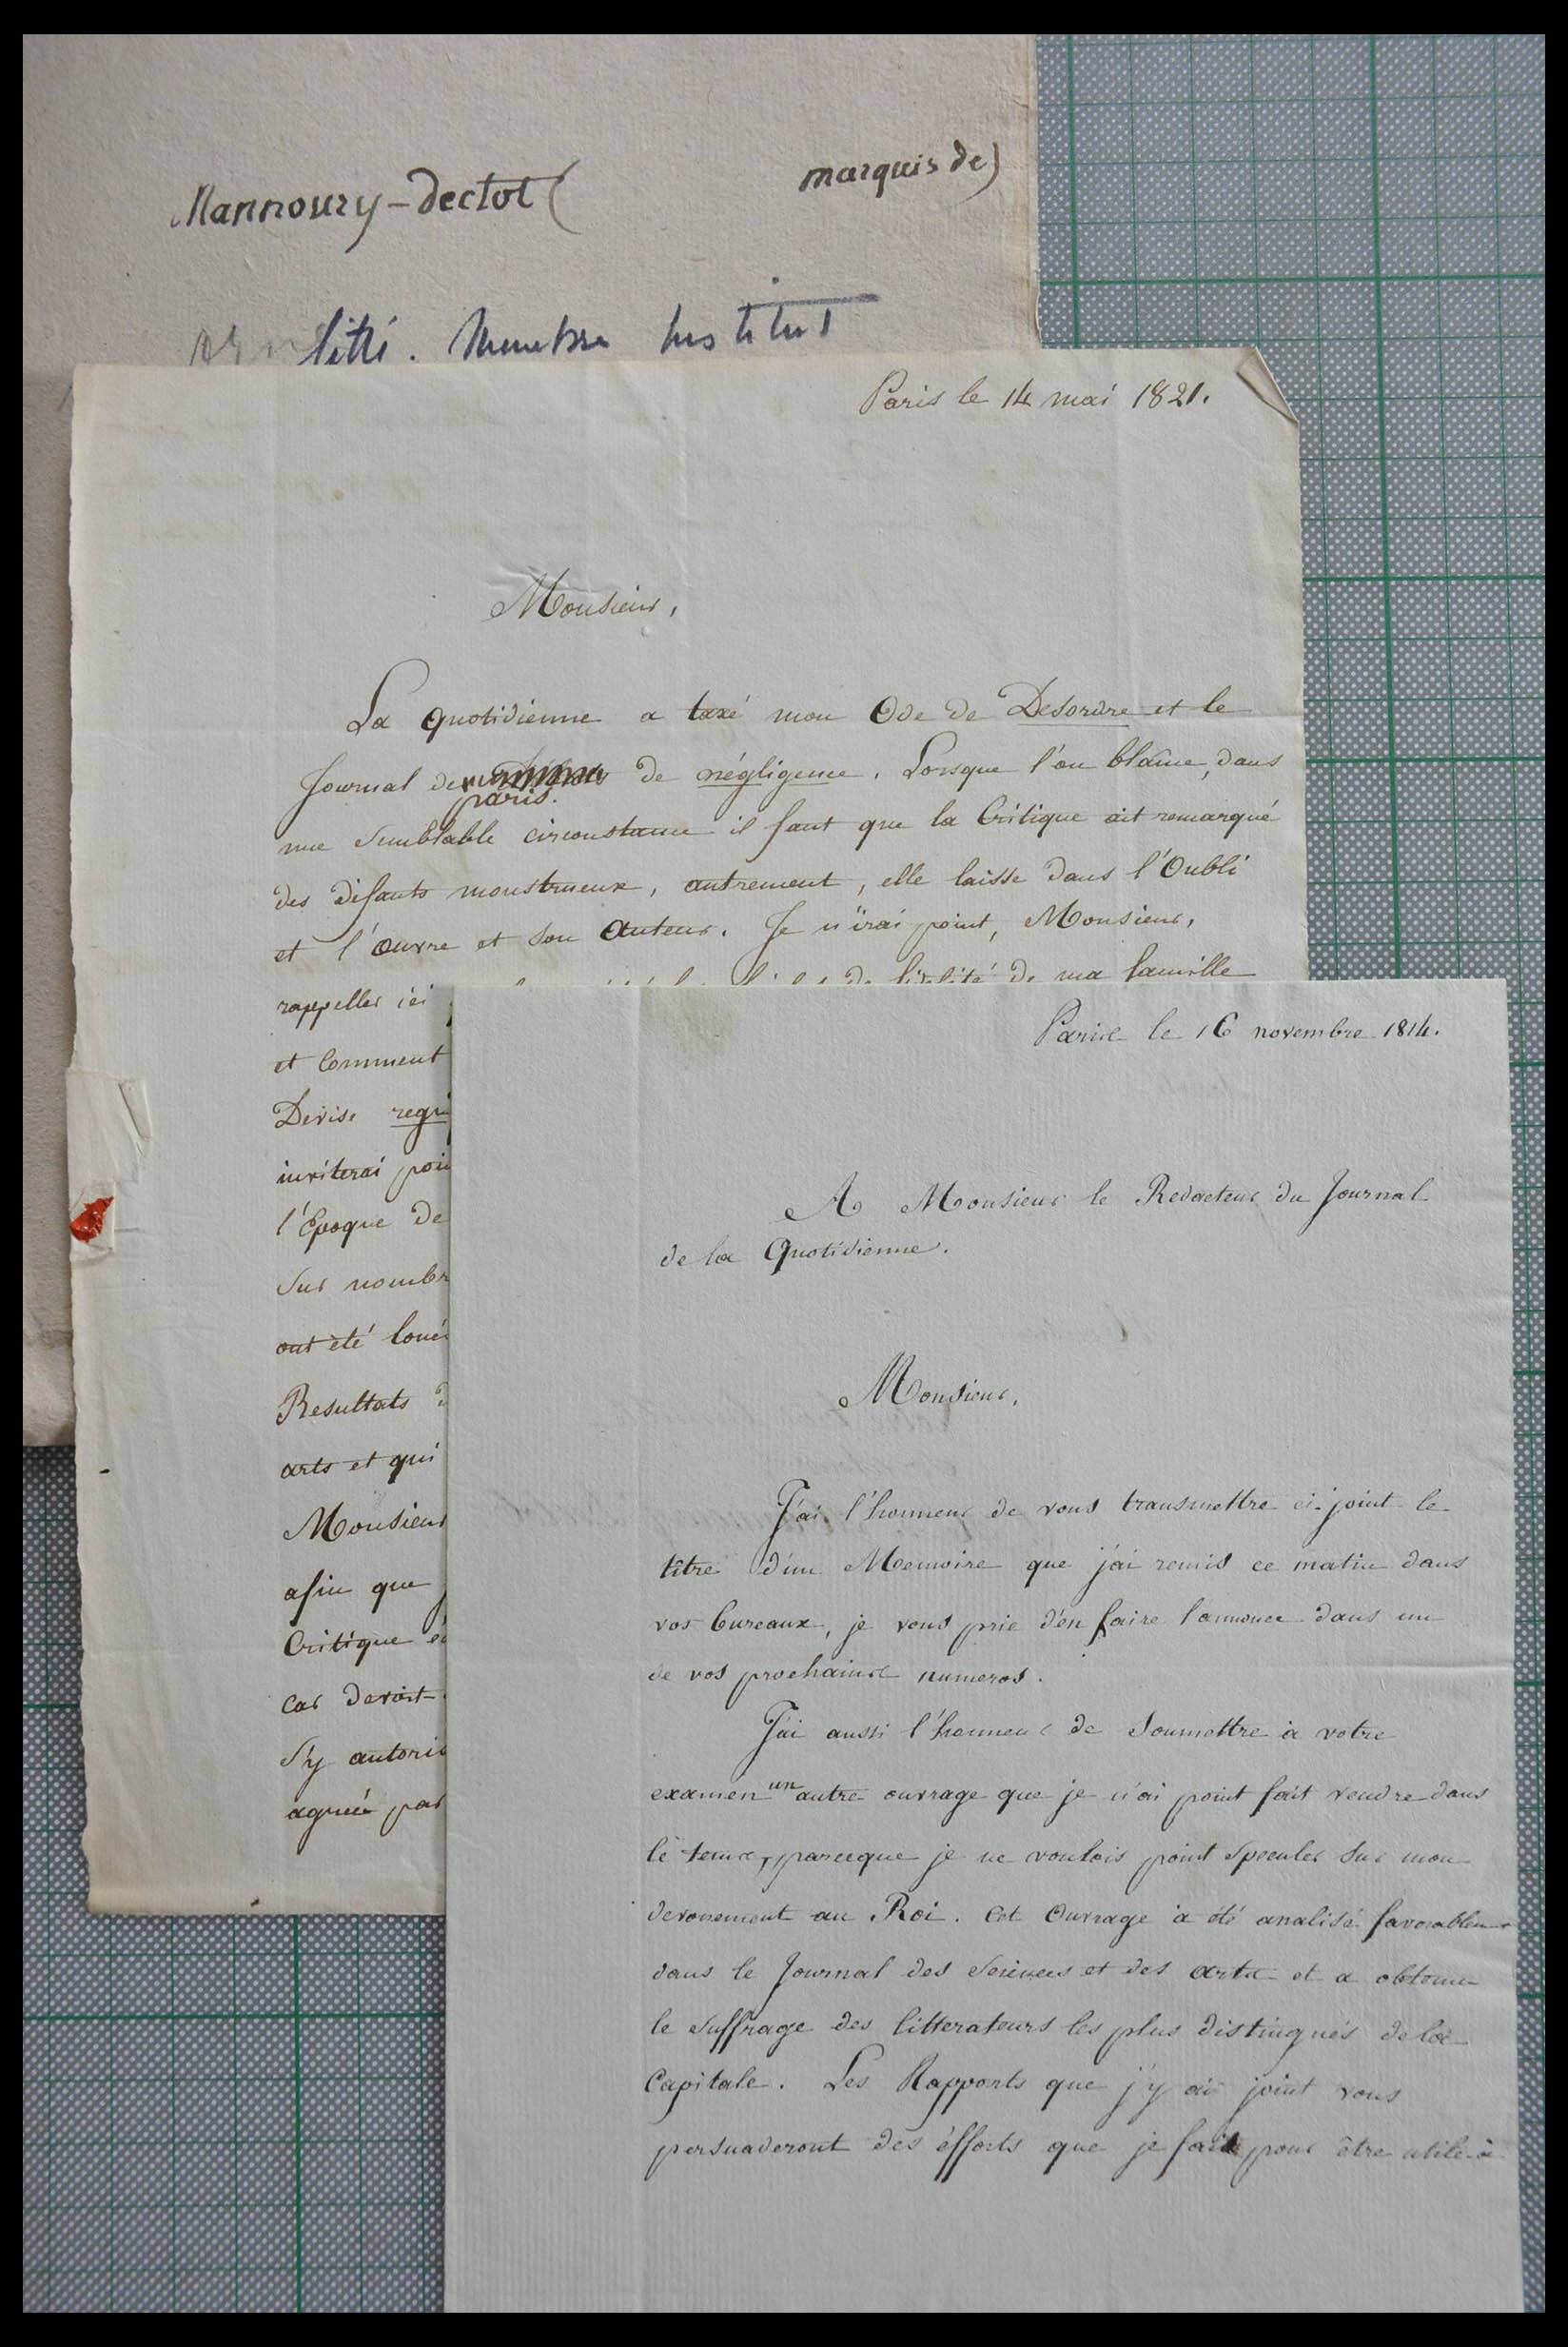 Mannoury-Dectot (            marquis de)
litté. Membre Institut
Paris le 14 mai 1821.
Monsieur,
La Quotidienne a taxé mon Ode de Desordre et le
Journal de
paris. de négligence. Lorsque l'on blame, dans
une semblable circonstance il faut que la Critique ait remarqué
des défauts monstrueux, autrement, elle laisse dans l'Oubli
et l'Œuvre et son Auteur. Je n'irai point, Monsieur,
rappeller ici de fidélité de ma famille
et comment
Devise
inviterai
l'Epoque de
Sur
ont été
Resultats
arts et qui
Monsieur
afin que
Critique
car devoit
S'y
agréée par
Paris le 16 novembre 1814.
A Monsieur le Redacteur du Journal
de la Quotidienne.
Monsieur,
J'ai l'honneur de vous transmettre ci-joint le
titre d'un Memoire que j'ai remis ce matin dans
vos bureaux, je vous prie d'en faire l'annonce dans un
de vos prochains numeros.
J'ai aussi l'honneur de Soumettre à votre
examen un autre ouvrage que je n'ai point fait vendre dans
le tems, parceque je ne voulois point Speculer sur mon
devouement au Roi. Cet Ouvrage à été analisé favorablemt
dans le Journal des Sciences et des arts et a obtenu
le Suffrage des litterateurs les plus distingués de la
Capitale. Les Rapports que j'y ai joint vous
persuaderont des éfforts que je fais pour être utile à